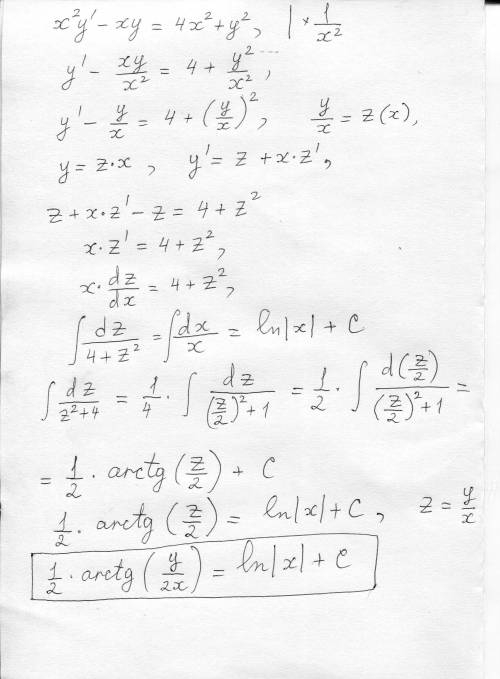 x²y' - xy = 4x² + y², | * 1/x²
y' - xy/x² = 4 + y²/x²,
y' - y/x = 4 + (y/x)², y/x = z(x),
y = z·x, y' = z + x·z',
z + x·z' - z = 4 + z²
x·z' = 4 + z²,
x·dz/dx = 4 + z²,
∫ dz/(4+z²) = ∫ dx/x = ln|x| + C
∫ dz/(z²+4) = 1/4 · ∫ dz/((z/2)²+1) = 1/2 · ∫ d(z/2)/((z/2)²+1) =
= 1/2 · arctg(z/2) + C
1/2 · arctg(z/2) = ln|x| + C, z = y/x
1/2 · arctg(y/2x) = ln|x| + C